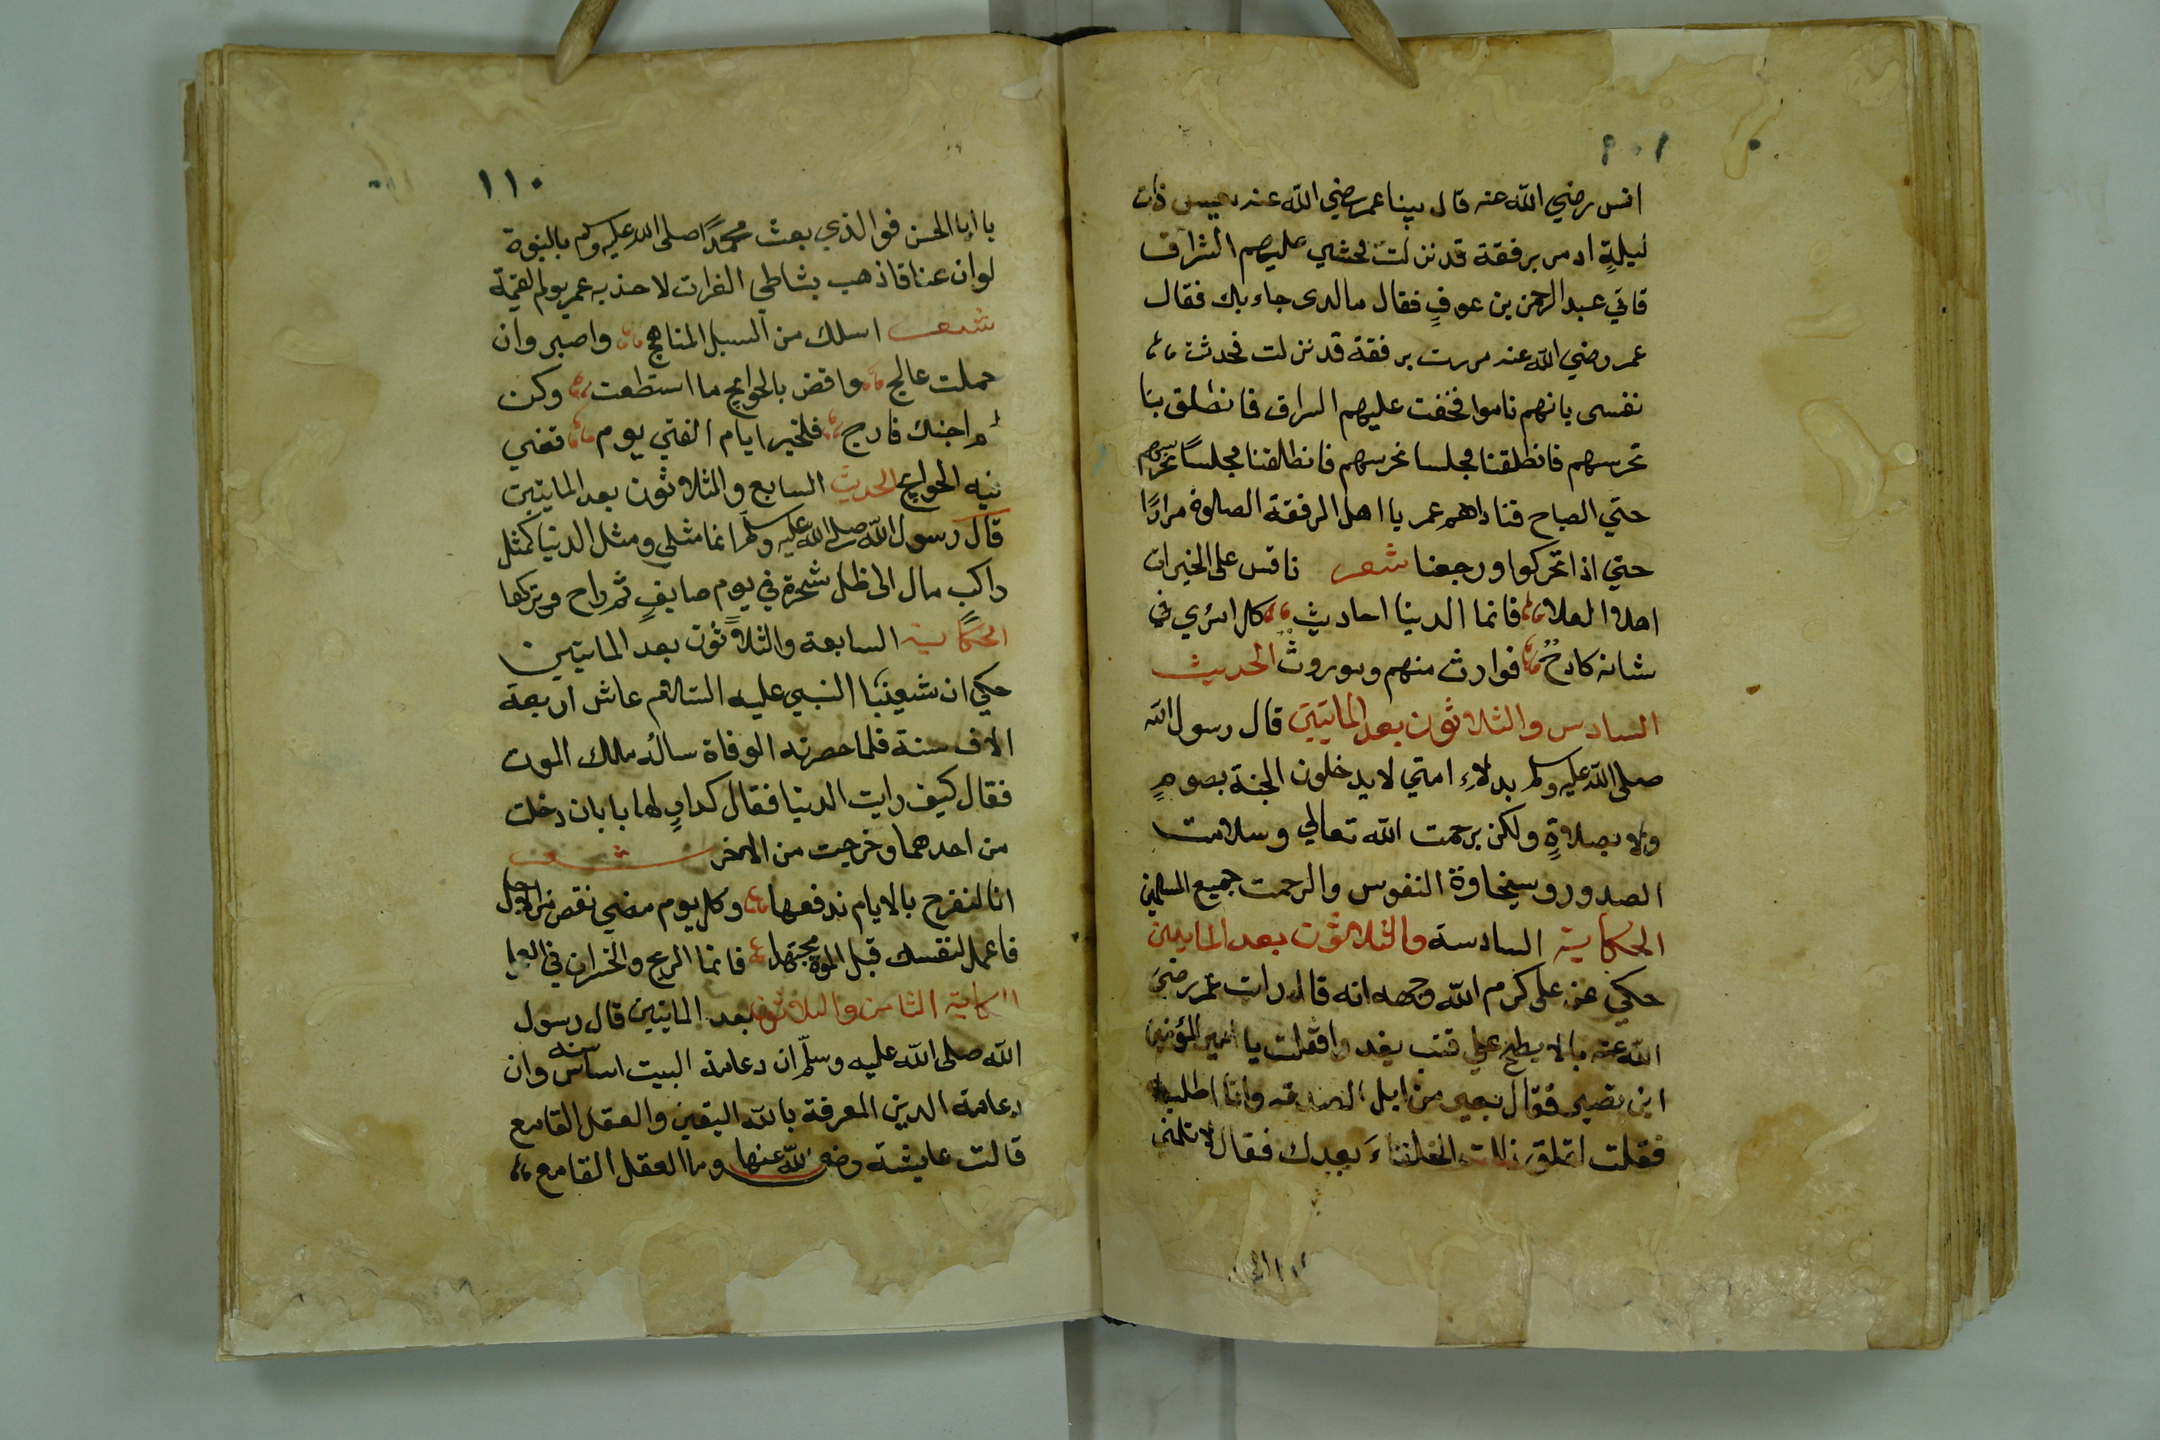 ١٠٩
انس رضي الله عنه قال بينا عمر رضي الله عنه يعس ذات
ليلةٍ اد مر برفقة قد نزلت فخشي عليهم السراق
فاتي عبد الرحمن بن عوفٍ فقال ما الدى جاء بك فقال
عمر رضي الله عنه مررت برفقة قد نزلت فحدثت
نفسى بانهم ناموا فخفت عليهم السراق فانطلق بنا
نحرسهم فانطلقنا مجلسا نحرسهم فانطالقنا مجلساً نحرسهم
حتي الصباح فناداهم عمر يا اهل الرفقة الصلوة مرارًا
حتي اذا تحركوا ورجعنا شعر نافس على الخيرات
اهل العلا فانما الدنيا احاديث كل امرئ في
شانه كادحٌ فوارث منهم وموروثٌ الحديث
السادس والثلاثون بعد الماتين قال رسول الله
صلى الله عليه وسلم بدلاء امتي لا يدخلون الجنة بصومٍ
ولا بصلاةٍ ولكن برحمت الله تعالي وسلامت
الصدور وسخاوة النفوس والرحمت جميع المسلمين
الحكاية السادسة والثلاثون بعد الماتين
حكي عن على كرم الله وجهه انه قال رات عمر رضي
الله عنه بالابطح علي قتب يغدوا فقلت يا امير المؤمنين
اين تصير فقال بعير من ابل الصدقه وانا اطلبه
فقلت لقد ذللت الخلفاء بعدك فقال لا تلمني
١١٠
يا ابا الحسن فو الذي بعث محمدًا صلى الله عليه وسلم بالنبوة
لو ان عناقا ذهب بشاطي الفرات لاخذ به عمر يوم القيمة
شعر اسلك من السبل المناهج واصبر وان
حملت عالج واقض بالحوايج ما استطعت وكن
هم اخيك فارج فلخير ايام الفتي يوم قضي
فيه الحوايج الحديث السابع والثلاثون بعد الماتين
قال رسول الله صلى الله عليه وسلم انما مثلي ومثل الدنيا كمثل
راكب مال الى ظل شجرة في يوم صايفٍ ثم راح وتركها
الحكاية السابعة والثلاثون بعد الماتين
حكي ان شعيبًا النبي عليه السلام عاش اربعة
الاف سنة فلما حضرته الوفاة ساله ملك الموت
فقال كيف رايت الدنيا فقال كدارٍ لها بابان دخلت
من احدهما وخرجت من الاخر شعر
انا لنفرح بالايام ندفعها وكل يوم مضي نقص من الاجل
فاعمل لنفسك قبل الموت مجتهدا فانما الربح والخسران في العمل
الحكاية الثامن والثلاثون بعد الماتين قال رسول
الله صلى الله عليه وسلّم ان دعامة البيت اساسه وان
دعامة الدين المعرفة بالله اليقين والعقل القامع
قالت عايشة رضي الله عنها وما العقل القامع